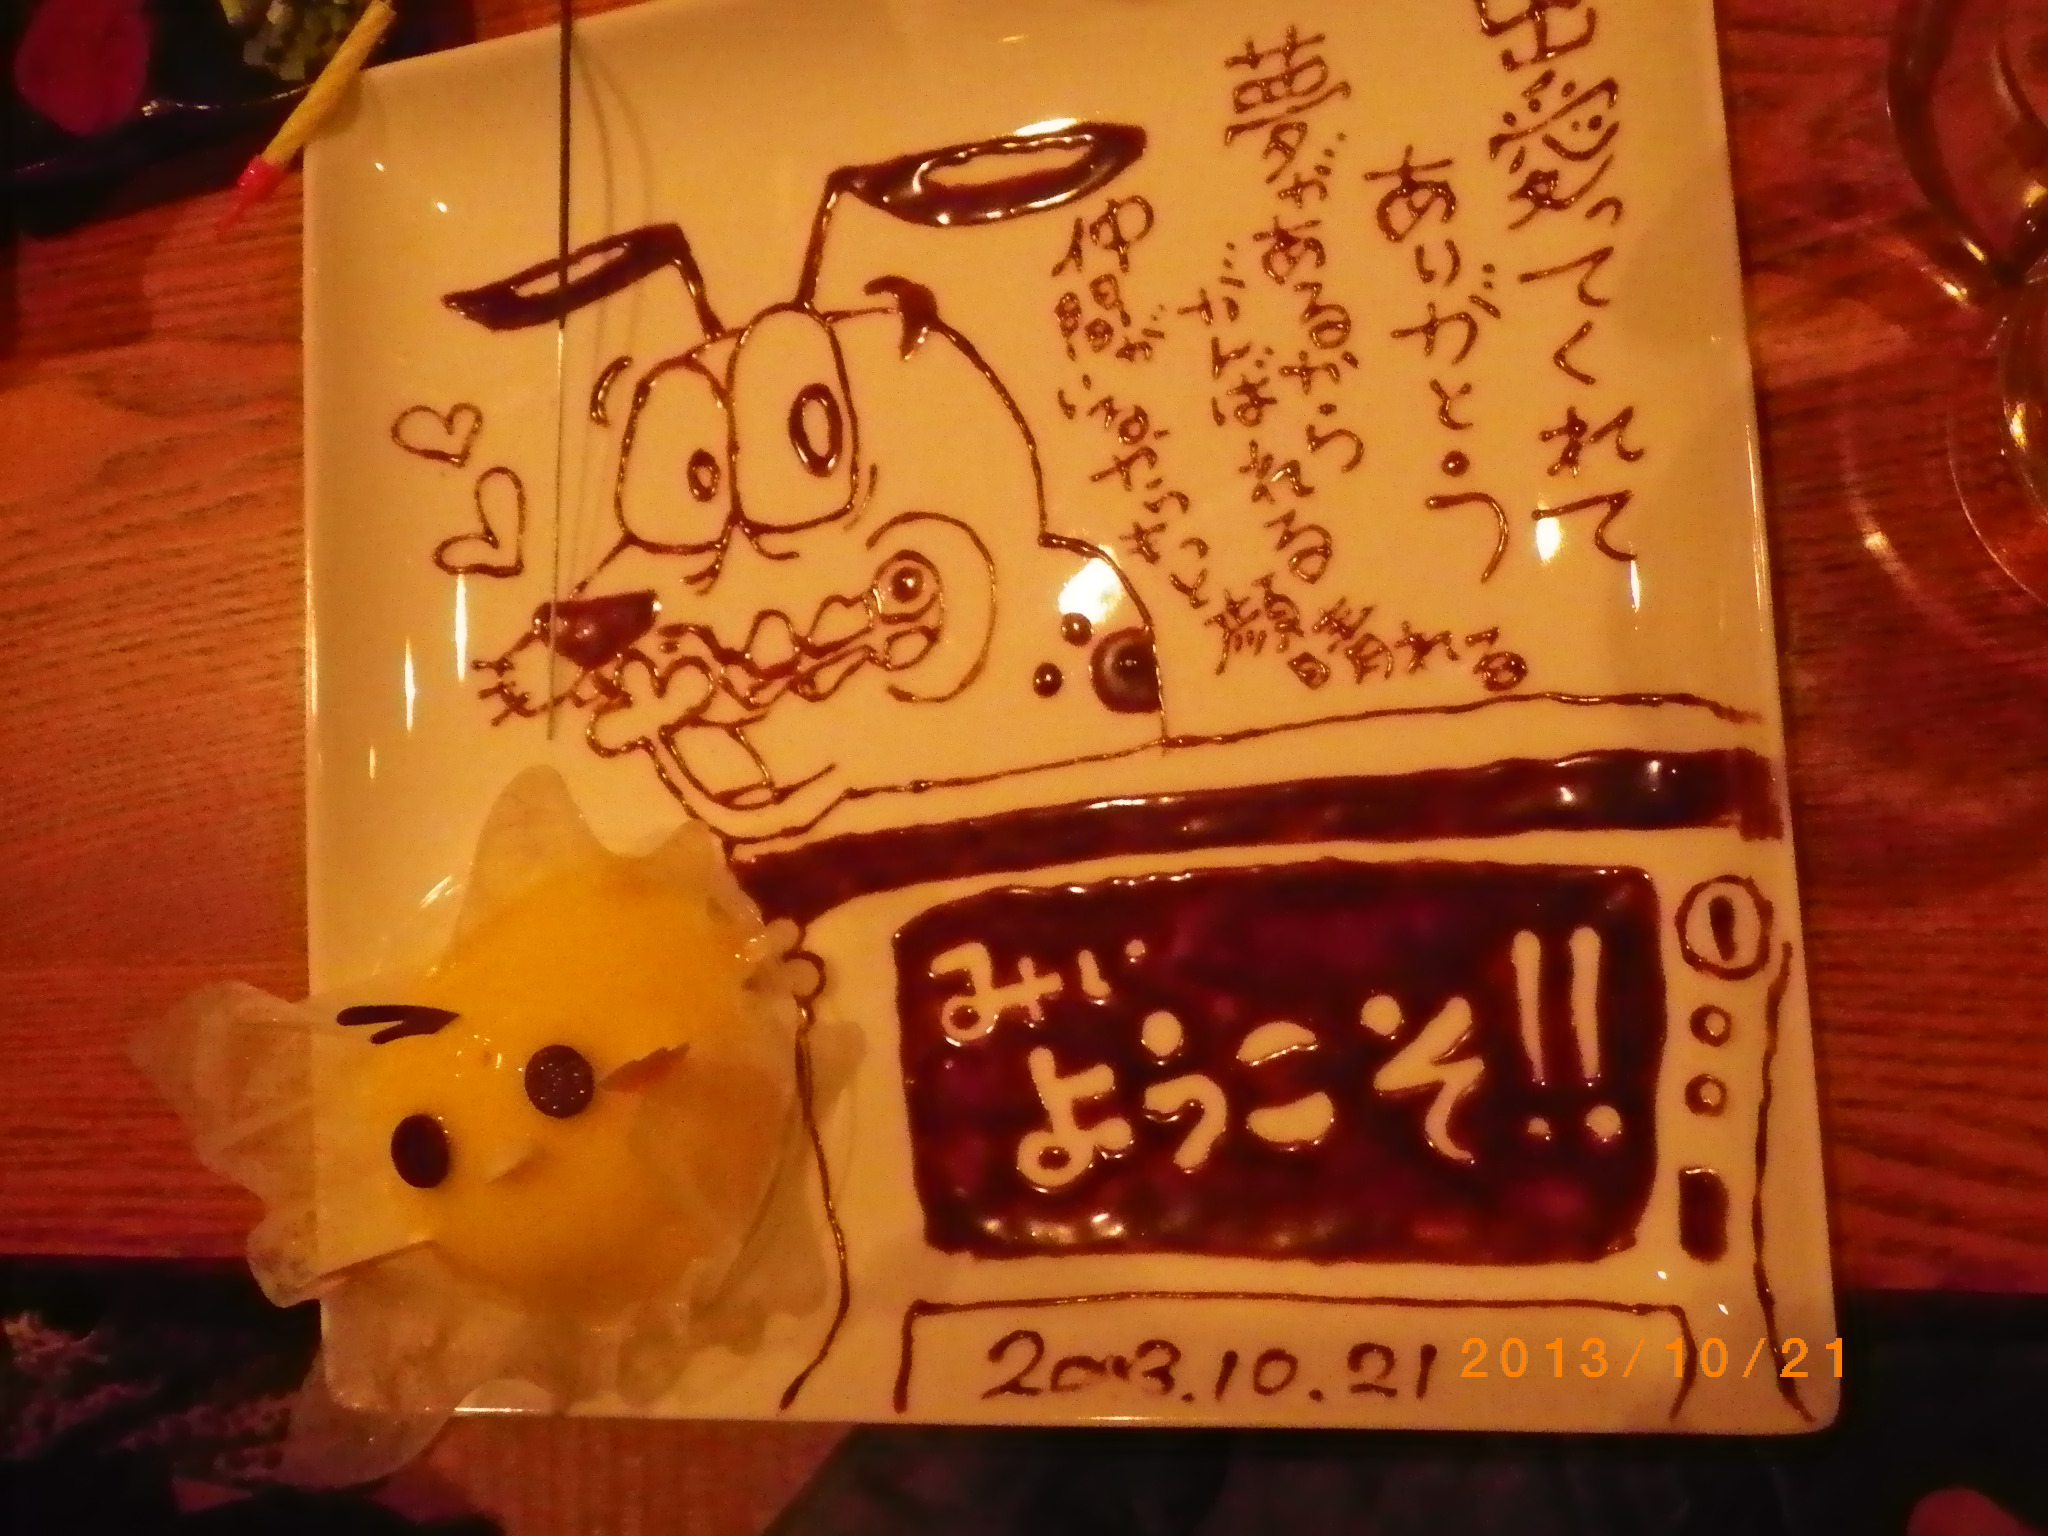 出愛ってくれて
ありがと・う
夢があるから
がんばれる
仲間がいるからきっと顔晴れる
みぃ
ようこそ!!
2013.10.21
2013/10/21